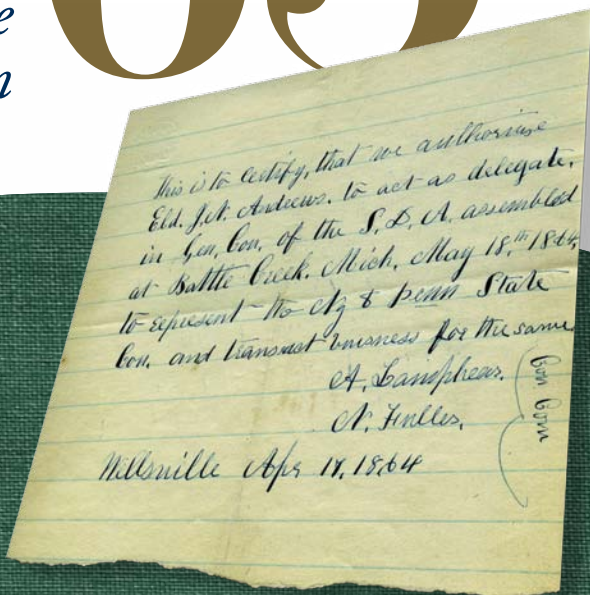 e
n
63
This is to certify, that we authorise
Eld. J. N. Andrews. to act as delegate.
in Gen. Con. of the S. D. A. assembled
at Battle Creek. Mich. May 18.th 1864,
to represent the Ny & Penn State
Con. and transact buisness for the same.
A. Lanphear.
N. Fuller.
Con Com
Wellsville Apr 17. 1864